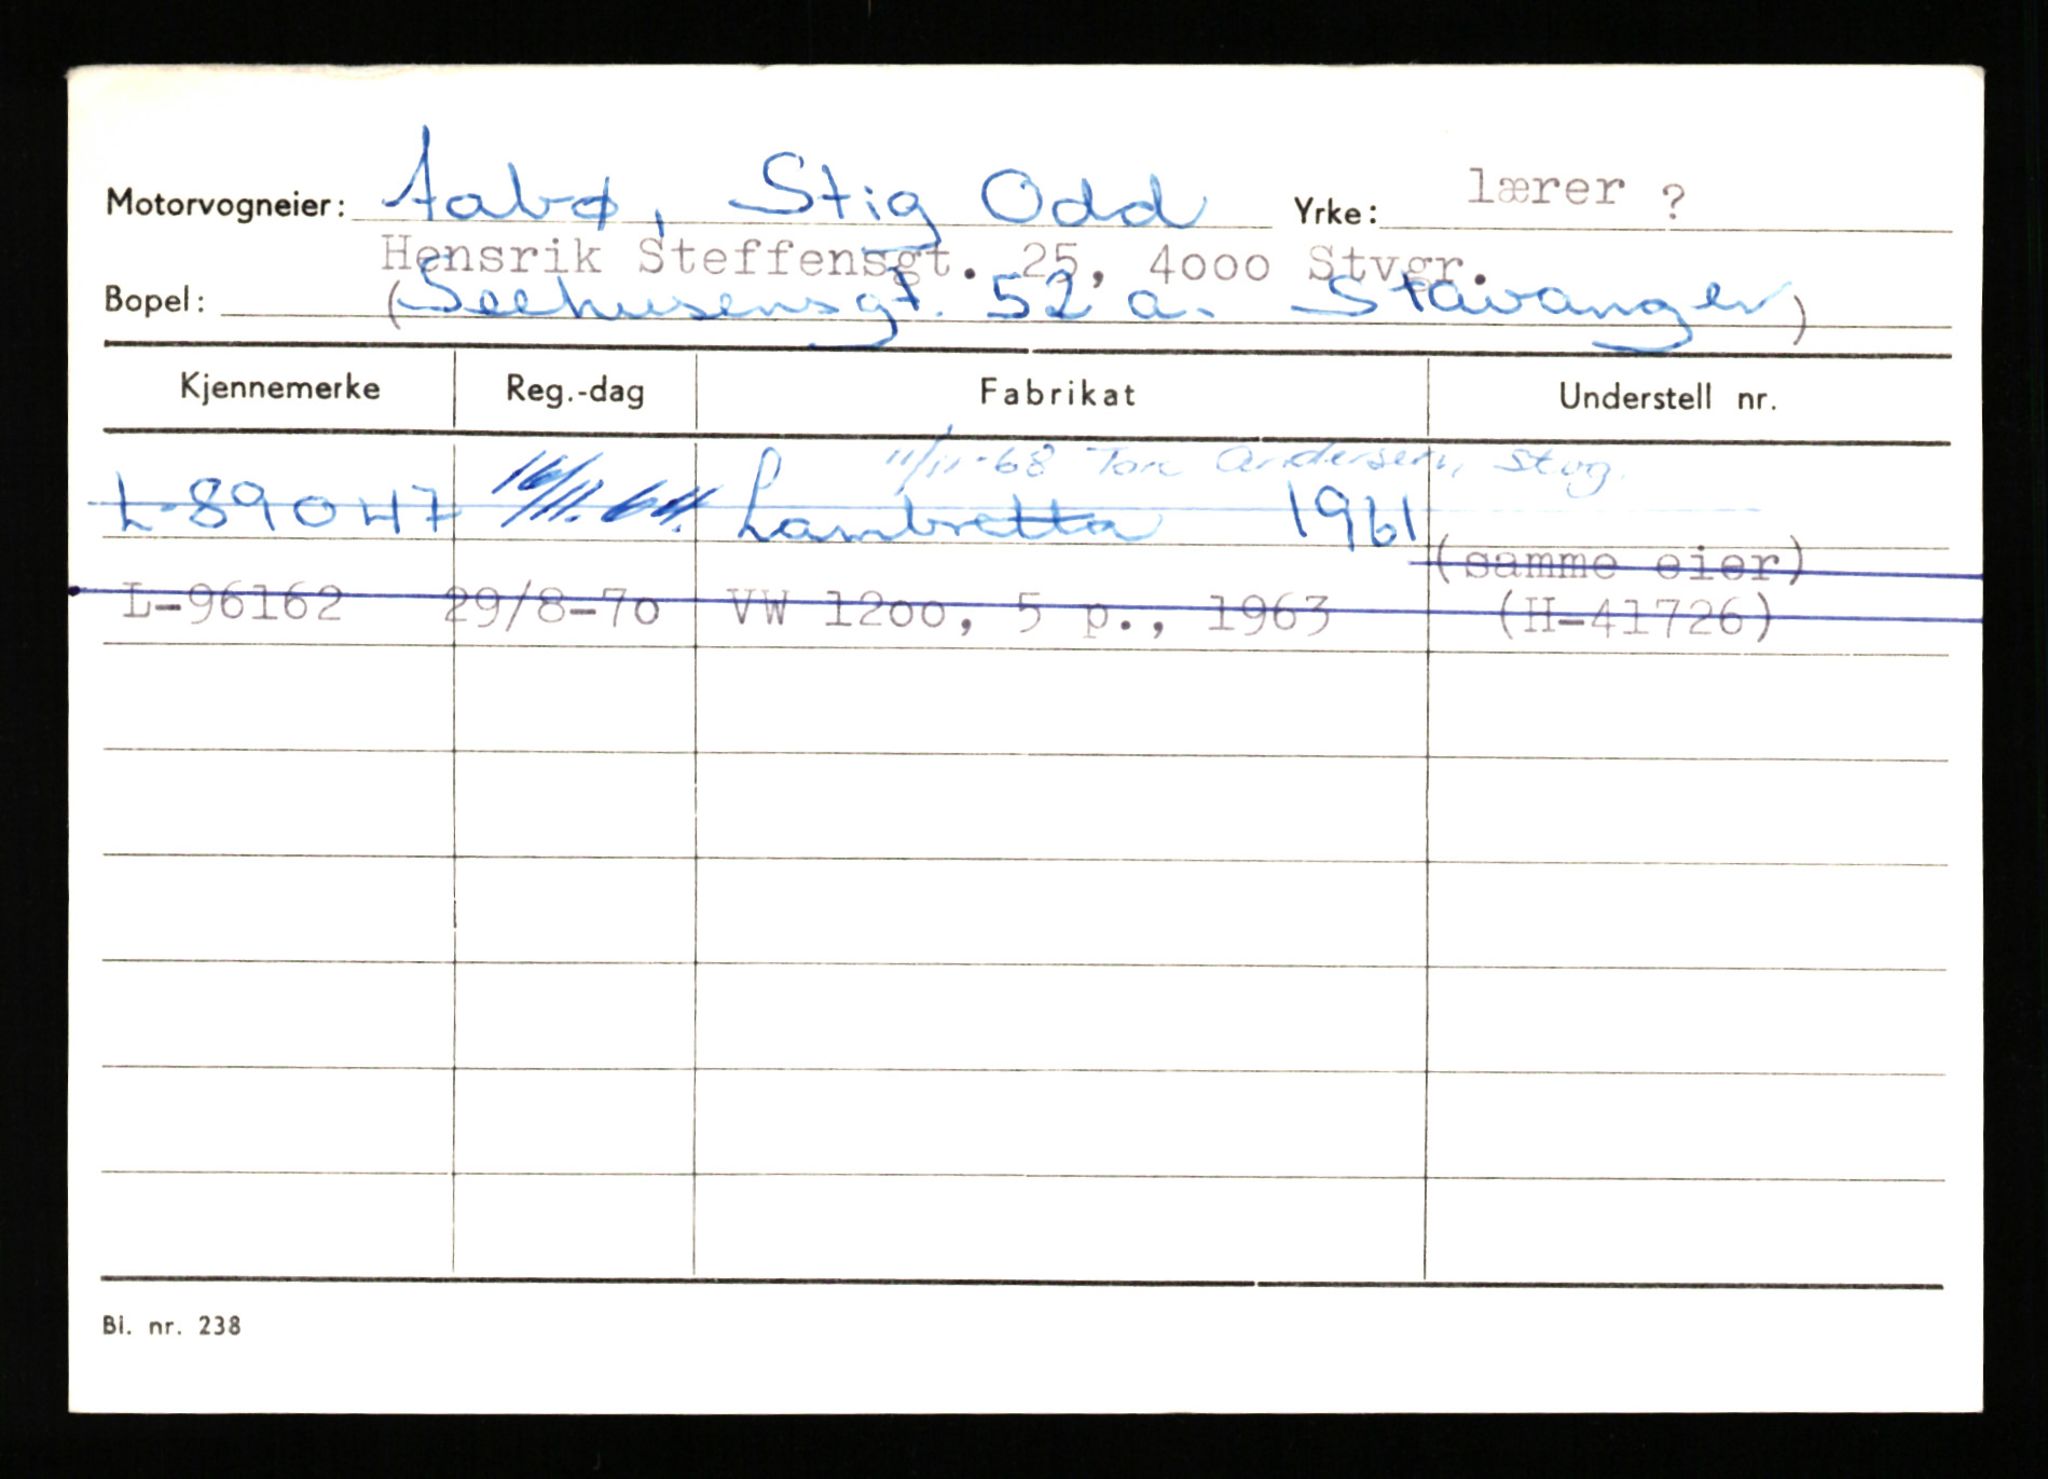 Motorvogneier: Aabø, Stig Odd Yrke: lærer ?
Hensrik Steffensgt. 25, 4000 Stvgr.
Bopel: (Seehusensgt. 52 a. Stavanger)
Kjennemerke Reg.-dag Fabrikat Understell nr.
11/11-68 Tore Andersen, Stvg.
L-89047 16/11.64. Lambretta 1961
(samme eier)
L-96162 29/8-70 VW 1200, 5 p., 1963 (H-41726)
Bl. nr. 238